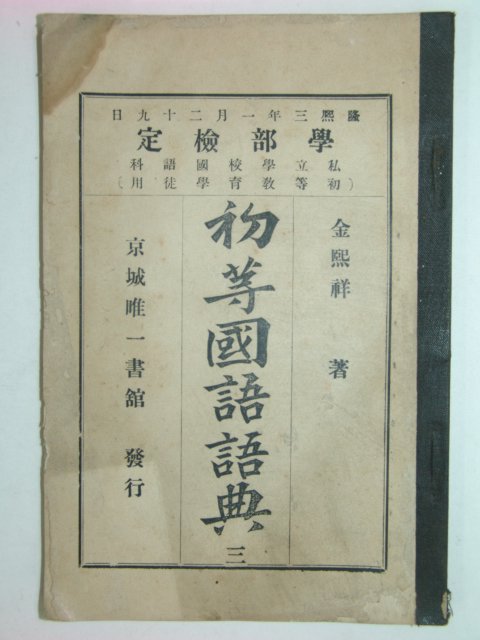 隆熙三年一月二十九日
學部檢定
私立學校國語科
(初等教育學徒用)
金熙祥 著
初等國語語典 三
京城唯一書館 發行